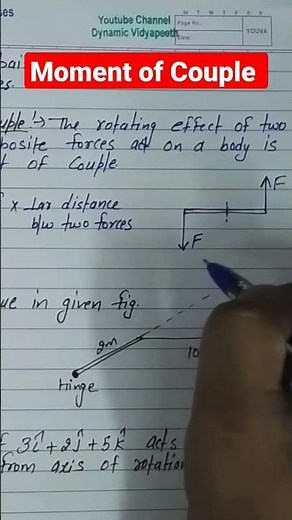 Youtube Channel
Dynamic Vidyapeeth
M T W T F S S
Page No.:
Date:
YOUVA
Moment of Couple
The rotating effect of two
forces act on a body is
of Couple
F
x Lar distance
b/w two forces
F
in given fig.
2m
10
Hinge
3î+2ĵ+5k̂ acts
from axis of rotation